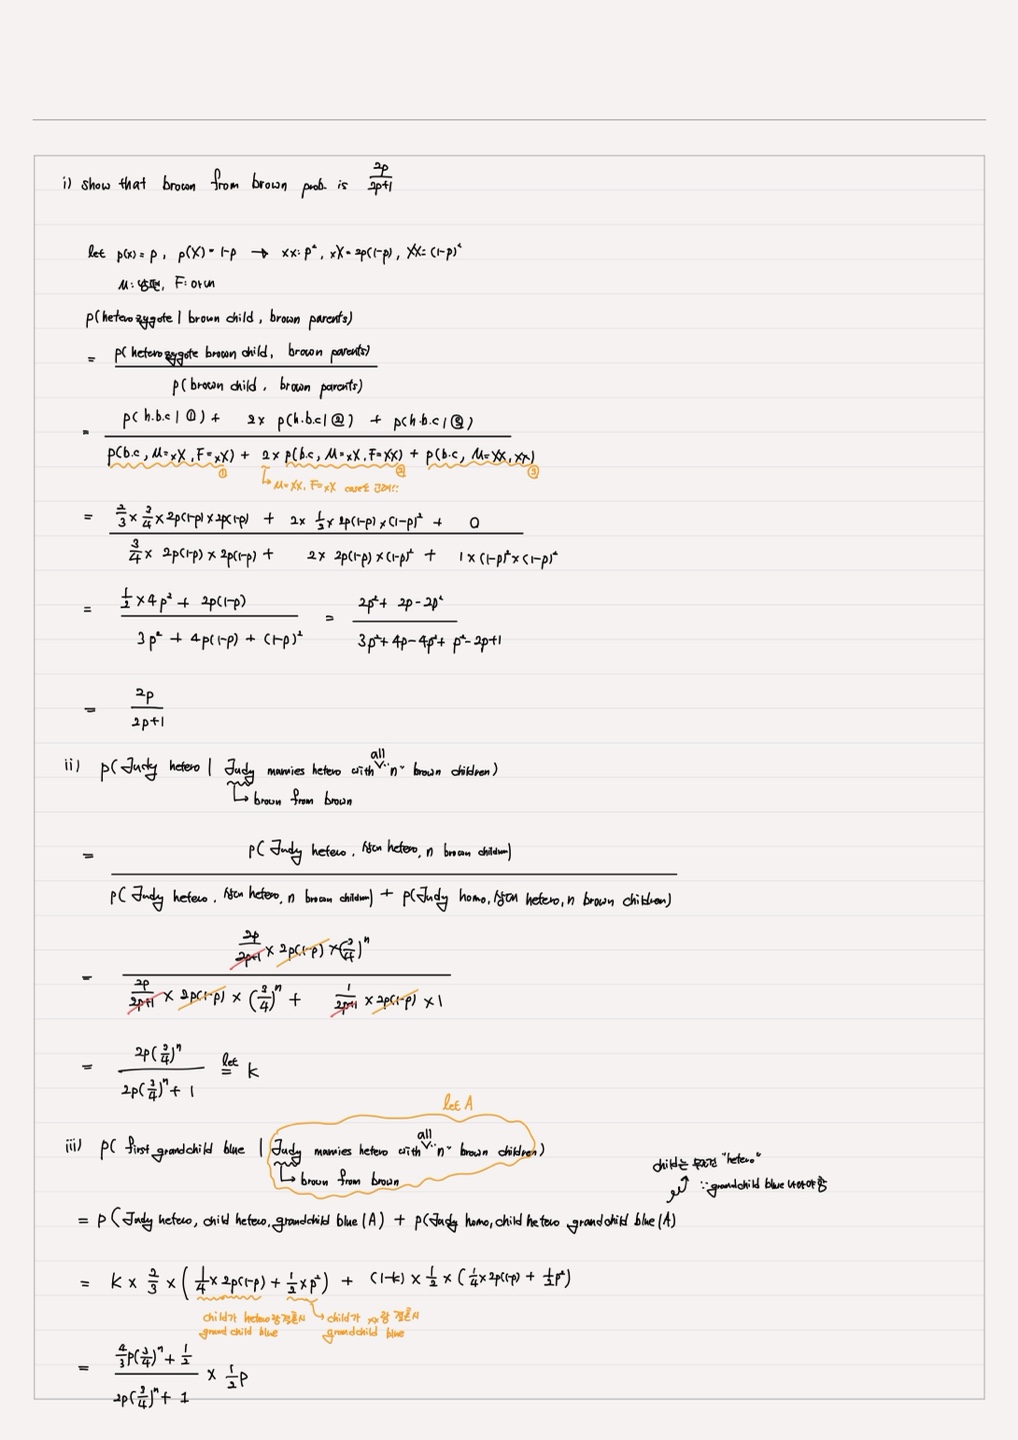 i) show that brown from brown prob. is 2p/(2p+1)
let p(x) = p, p(X) = 1-p → xx: p², xX = 2p(1-p), XX = (1-p)²
M: 남편, F: 아내
p(heterozygote | brown child, brown parents)
= p(heterozygote brown child, brown parents) / p(brown child, brown parents)
= p(h.b.c | ①) + 2× p(h.b.c | ②) + p(h.b.c | ③) / p(b.c, M=xX, F=xX) + 2× p(b.c, M=xX, F=XX) + p(b.c, M=XX, XX)
① ② ③
↳ M=XX, F=xX case도 고려!!
= 2/3 × 3/4 × 2p(1-p) × 2p(1-p) + 2× 1/2 × 2p(1-p) × (1-p)² + 0 / 3/4 × 2p(1-p) × 2p(1-p) + 2× 2p(1-p) × (1-p)² + 1 × (1-p)² × (1-p)²
= 1/2 × 4p² + 2p(1-p) / 3p² + 4p(1-p) + (1-p)² = 2p² + 2p - 2p² / 3p² + 4p - 4p² + p² - 2p + 1
= 2p / 2p+1
ii) p( Judy hetero | Judy marries hetero with all "n" brown children)
↳ brown from brown
= p( Judy hetero, 남편 hetero, n brown children) / p( Judy hetero, 남편 hetero, n brown children) + p(Judy homo, 남편 hetero, n brown children)
= 2p/2p+1 × 2p(1-p) × (3/4)ⁿ / 2p/2p+1 × 2p(1-p) × (3/4)ⁿ + 1/2p+1 × 2p(1-p) × 1
= 2p(3/4)ⁿ / 2p(3/4)ⁿ + 1 let = k
let A
iii) p( first grandchild blue | Judy marries hetero with all "n" brown children)
↳ brown from brown
child는 무조건 "hetero"
∵ grandchild blue 나와야함
= p( Judy hetero, child hetero, grandchild blue | A) + p(Judy homo, child hetero grandchild blue | A)
= k × 2/3 × ( 1/4 × 2p(1-p) + 1/2 × p²) + (1-k) × 1/2 × ( 1/4 × 2p(1-p) + 1/2 p²)
child가 hetero랑 결혼시 grand child blue
↳ child가 xx랑 결혼시 grandchild blue
= 4/3 p(3/4)ⁿ + 1/2 / 2p(3/4)ⁿ + 1 × 1/2 p